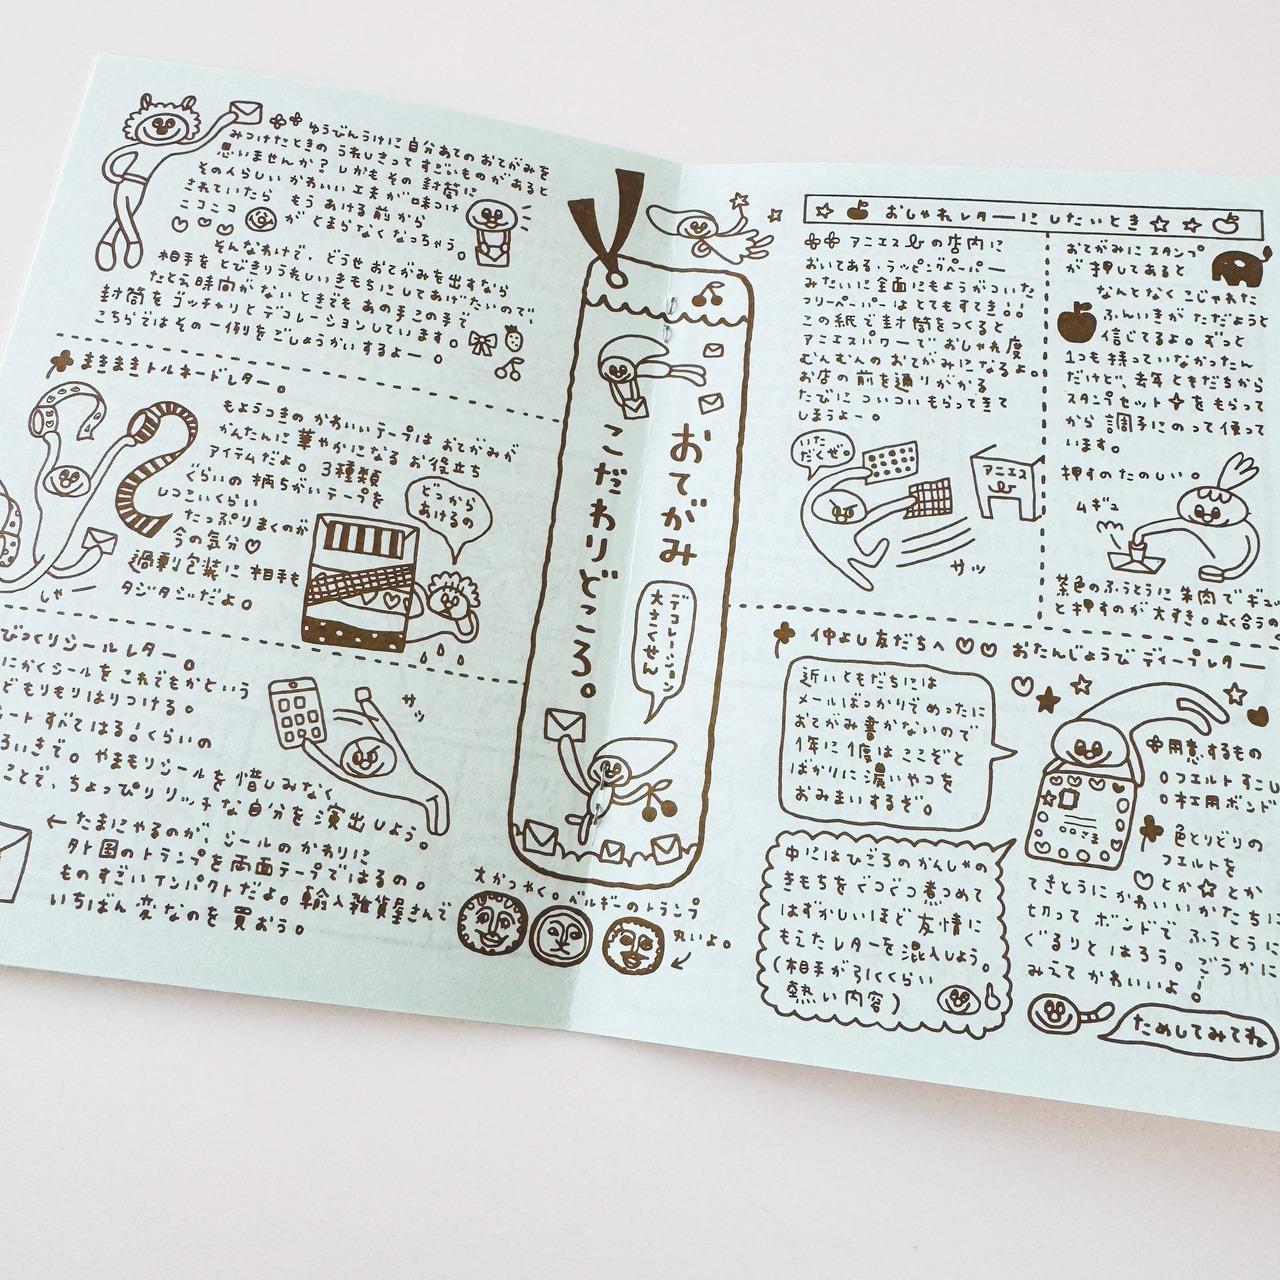 ゆうびんうけに自分あてのおてがみを
みつけたときのうれしさってすごいものがあると
思いませんか？しかもその封筒に
その人らしいかわいい工夫が味つけ
されていたら もうあける前から
ニコニコ がとまらなくなっちゃう。
そんなわけで、どうせおてがみを出すなら
相手をとびきりうれしいきもちにしてあげたいので、
たとえ時間がないときでもあの手この手で
封筒をゴッチャリとデコレーションしています。
こちらではその一例をごしょうかいするよー。
まきまきトルネードレター。
もようつきのかわいいテープはおてがみが
かんたんに華やかになるお役立ち
アイテムだよ。3種類
ぐらいの柄ちがいテープを
しつこいくらい
たっぷりまくのが
今の気分♡
過剰包装に相手も
タジタジだよ。
どっから
あけるの
しゃー
びっくりシールレター。
にかくシールをこれでもかという
どもりもりはりつける。
ート すべてはる！くらいの
ろいきで。やまもりシールを惜しみなく
ことで、ちょっぴりリッチな自分を演出しよう。
サッ
← たまにやるのが、シールのかわりに
外国のトランプを両面テープではるの。
ものすごいインパクトだよ。輸入雑貨屋さんで
いちばん変なのを買おう。
大かつやく。ベルギーのトランプ
丸いよ。
おてがみ
こだわりどころ。
デコレーション
大さくせん
☆ おしゃれレターにしたいとき ☆ ☆
アニエスbの店内に
おいてあるラッピングペーパー
みたいに全面にもようがついた
フリーペーパーはとてもすてき。。
この紙で封筒をつくると
アニエスパワーでおしゃれ度
むんむんのおてがみになるよ。
お店の前を通りがかる
たびについついもらってきて
しまうよー。
いた
だくぜ。
アニエス
b
サッ
おてがみにスタンプ
が押してあると
なんとなくこじゃれた
ふんいきがただようと
信じてるよ。ずっと
1つも持っていなかったん
だけど、去年ともだちから
スタンプセットをもらって
から調子にのって使って
います。
押すのたのしい。
ムギュ
茶色のふうとうに朱肉でギュ
と押すのが大すき。よく合うの
仲よし友だちへ♡♡ おたんじょうびディープレター
近いともだちには
メールばっかりでめったに
おてがみ書かないので
1年に1度はここぞと
ばかりに濃いやつを
おみまいするぞ。
中にはひごろのかんしゃの
きもちをぐつぐつ煮つめて
はずかしいほど友情に
もえたレターを混入しよう。
(相手が引くくらい
熱い内容)
用意するもの
○フエルトすこし
○木工用ボンド
色とりどりの
フエルトを
♡とか☆とか
てきとうにかわいいかたちに
切ってボンドでふうとうに
ぐるりとはろう。ごうかに
みえてかわいいよ！
ためしてみてね